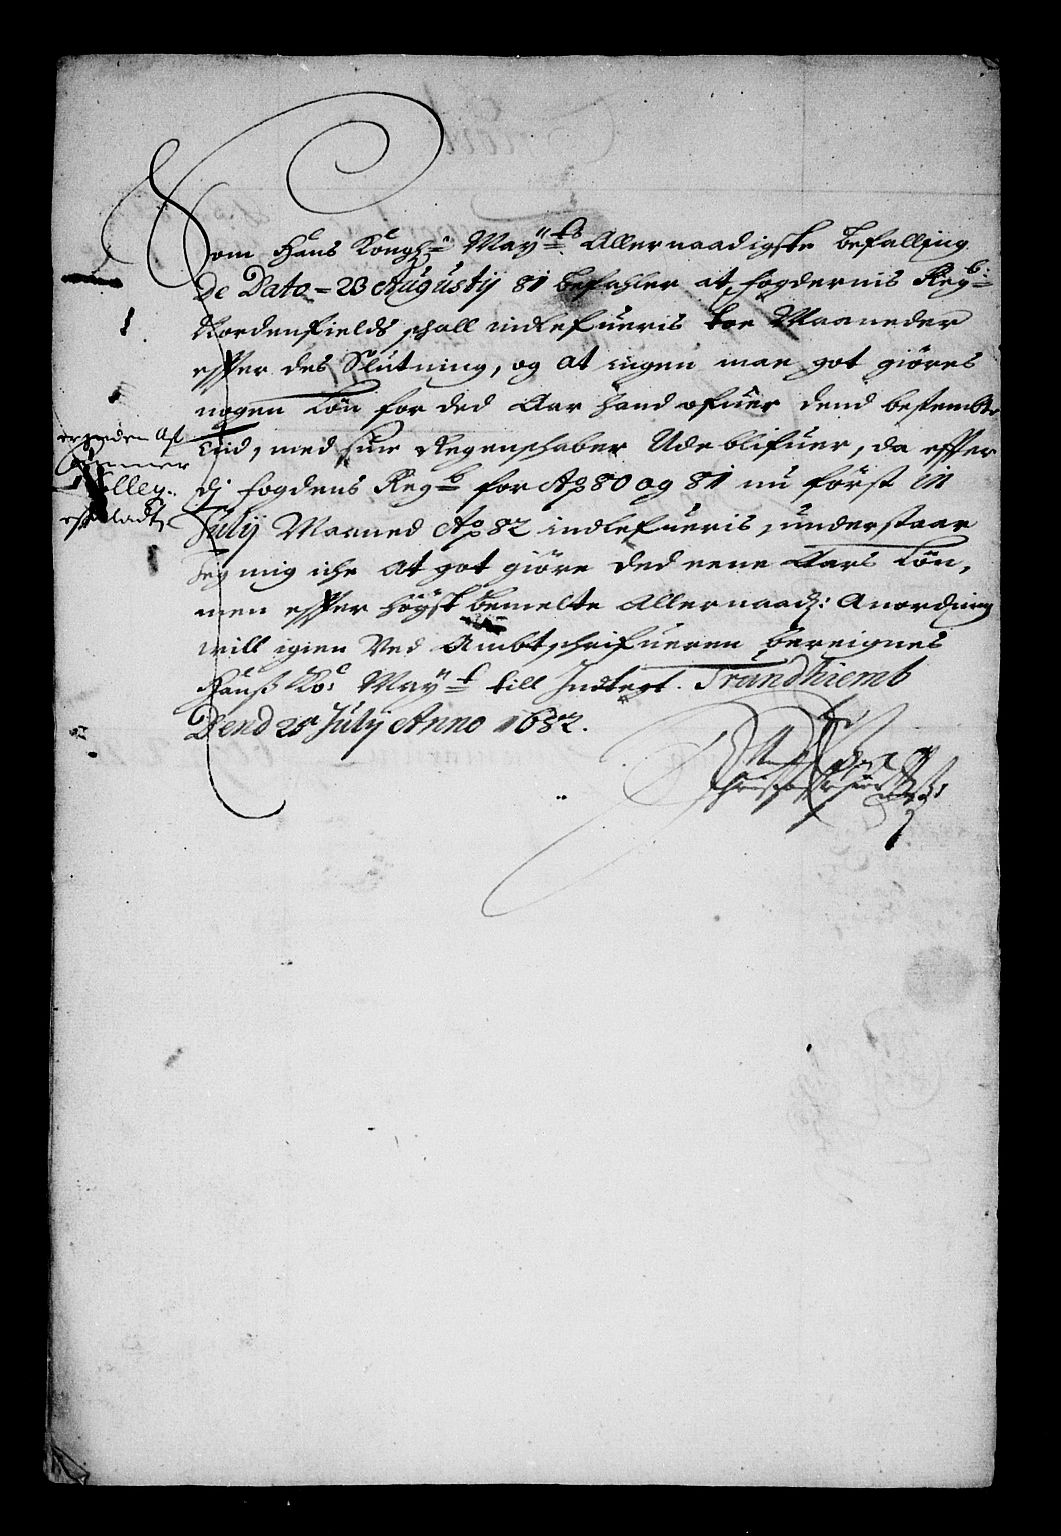 Som Hans Kongl: May:ts Allernaadigste befalling
De Dato - 23 Augustij 81 befahler at fogdernis Regb:
Nordenfields schall indlefueris toe Maaneder
effter des Slutning, og at ingen maa got giöres
nogen Lön for ded Aar hand ofuer dend bestembte
Tid, med sine Regenschaber Udeblifuer, da effter
dj fogdens Regb for Ao 80 og 81 nu först in
Julij Maaned Ao 82 indlefueris, understaar
Jeg mig iche at got giöre ded eene Aars Lön,
men effter högst bemelte Allernaad: Anordning
will igien Ved Ambtschrifueren bereignes
Hans Ko: May:t till Indtegt. Trundhiemb
Dend 25 Julij Anno 1682.